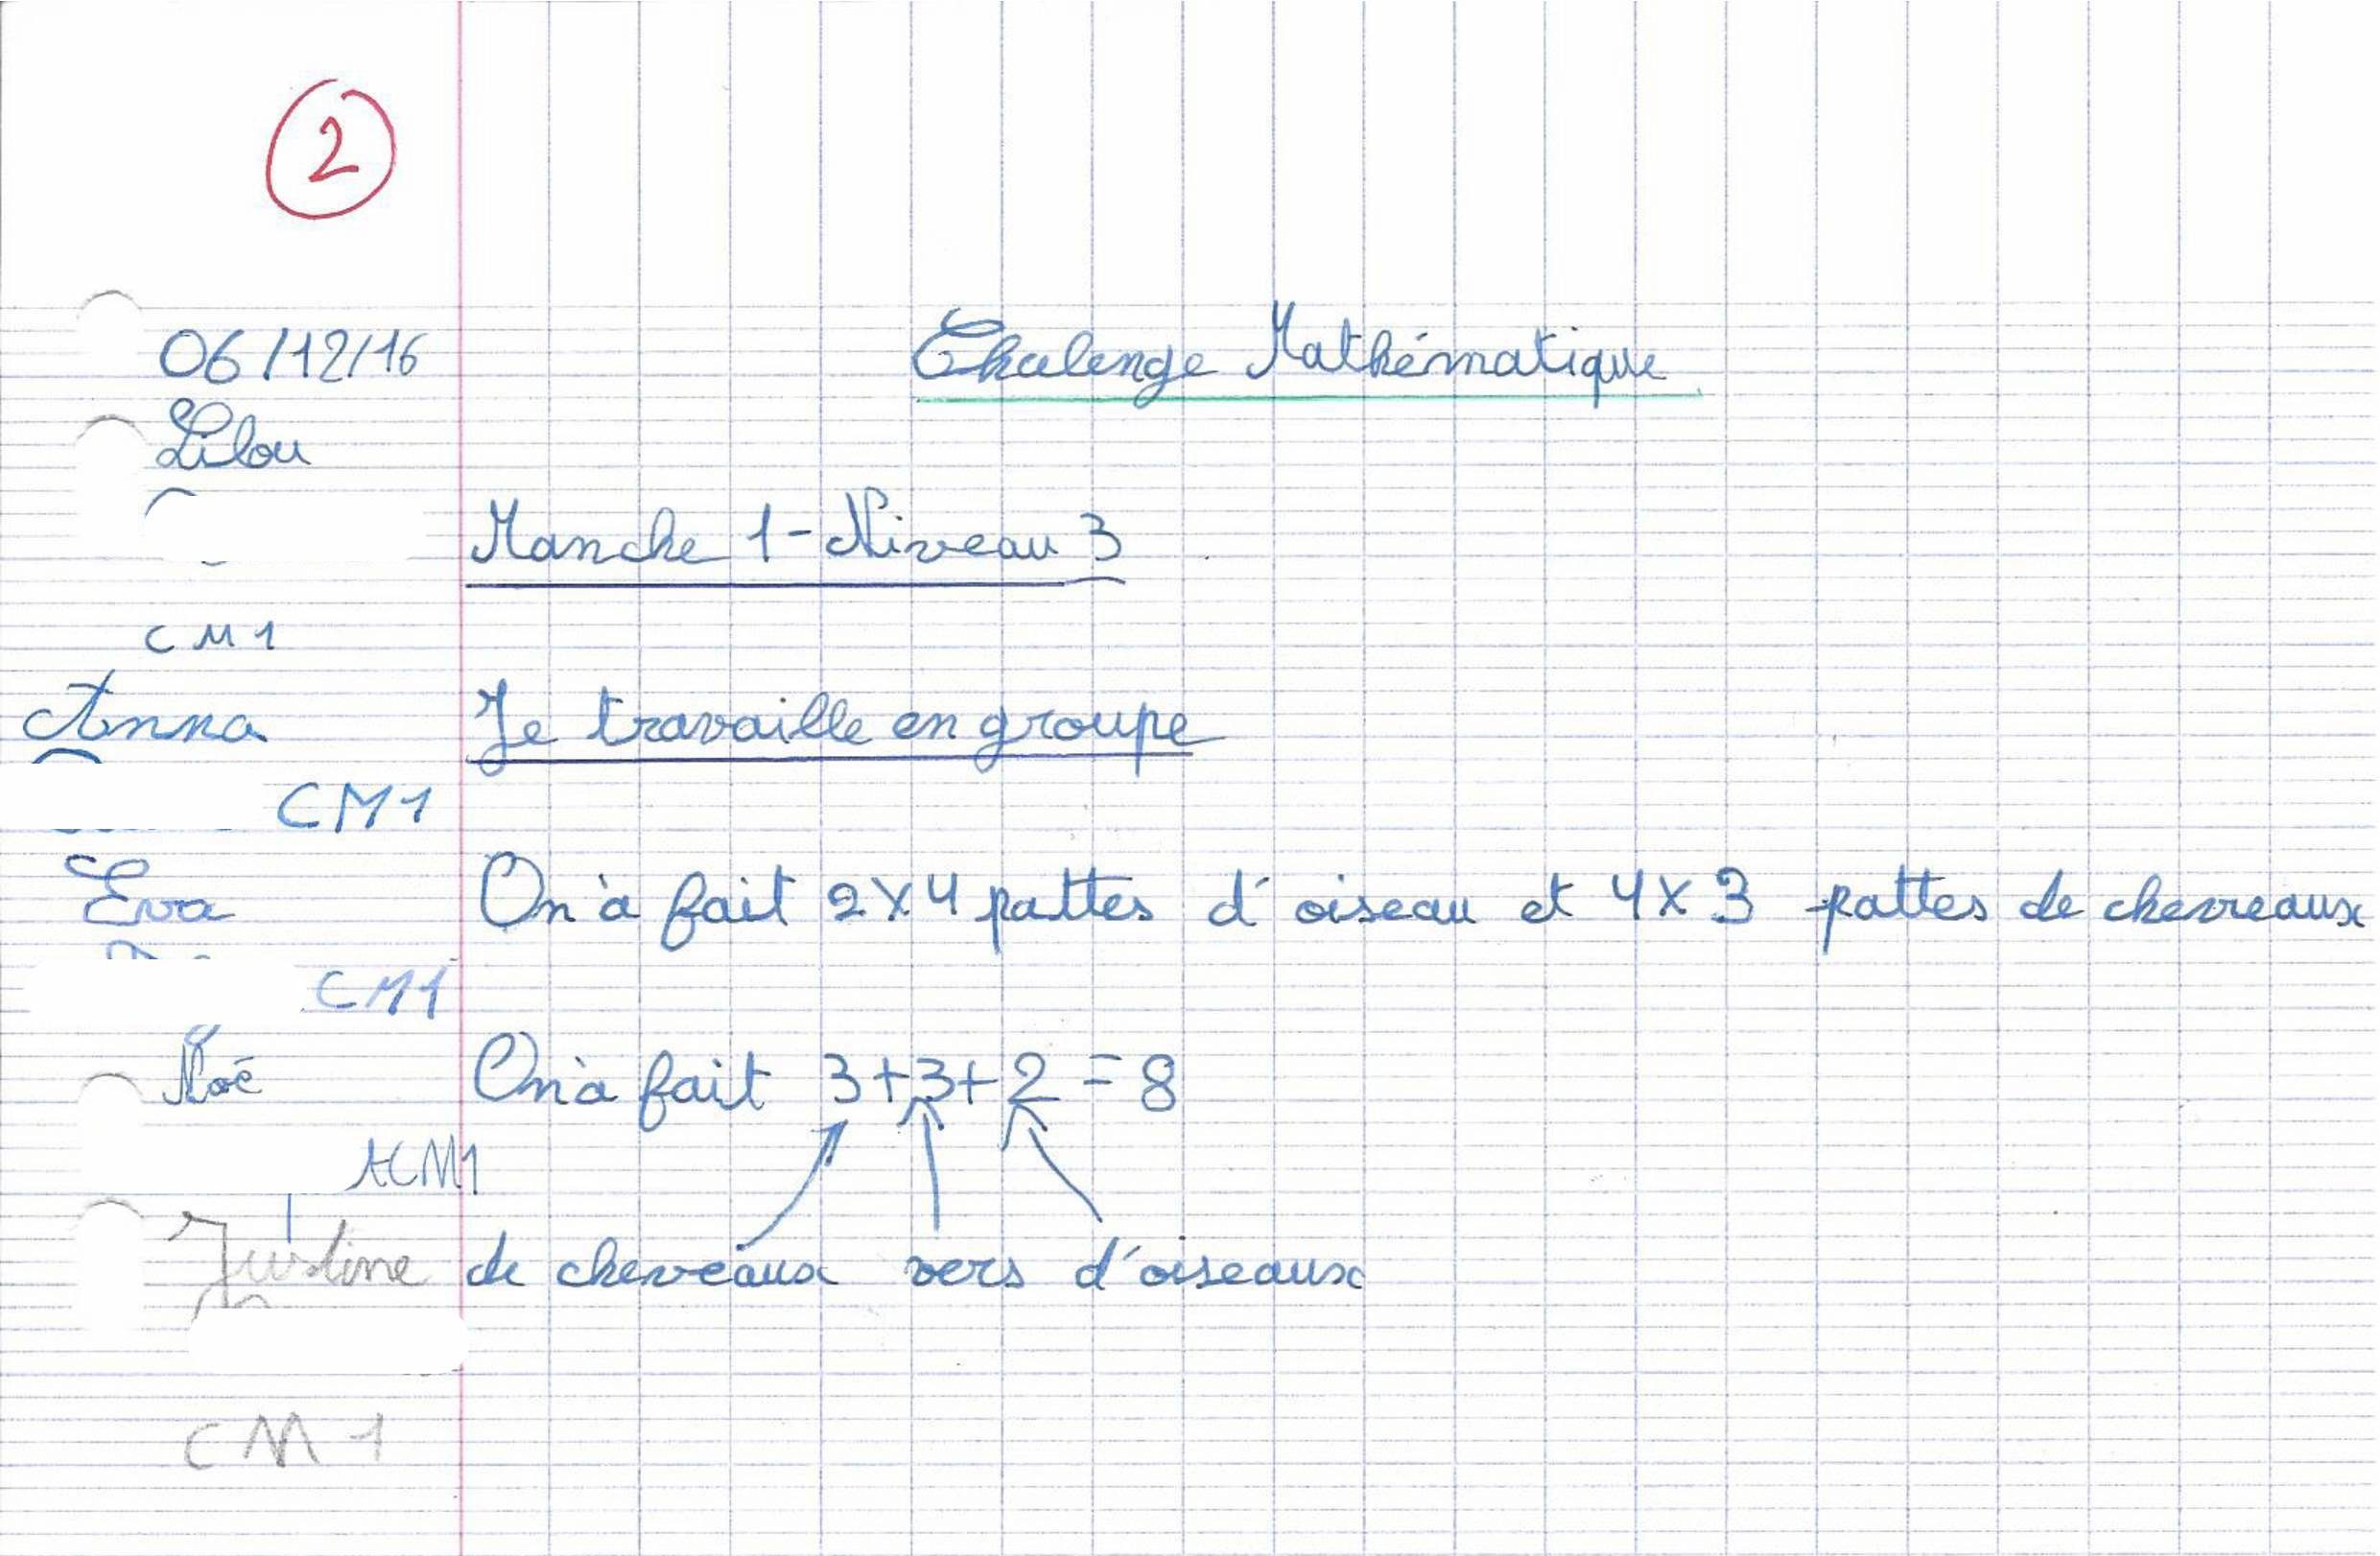 2
06/12/16 Chalenge Mathématique
Lilou
Manche 1 - Niveau 3
CM1
Anna Je travaille en groupe
CM1
Eva On à fait 2x4 pattes d'oiseau et 4x3 pattes de chevreaux
CM1
Noé On à fait 3+3+2 = 8
CM1
Justine de cheveaux vers d'oiseaux
CM1